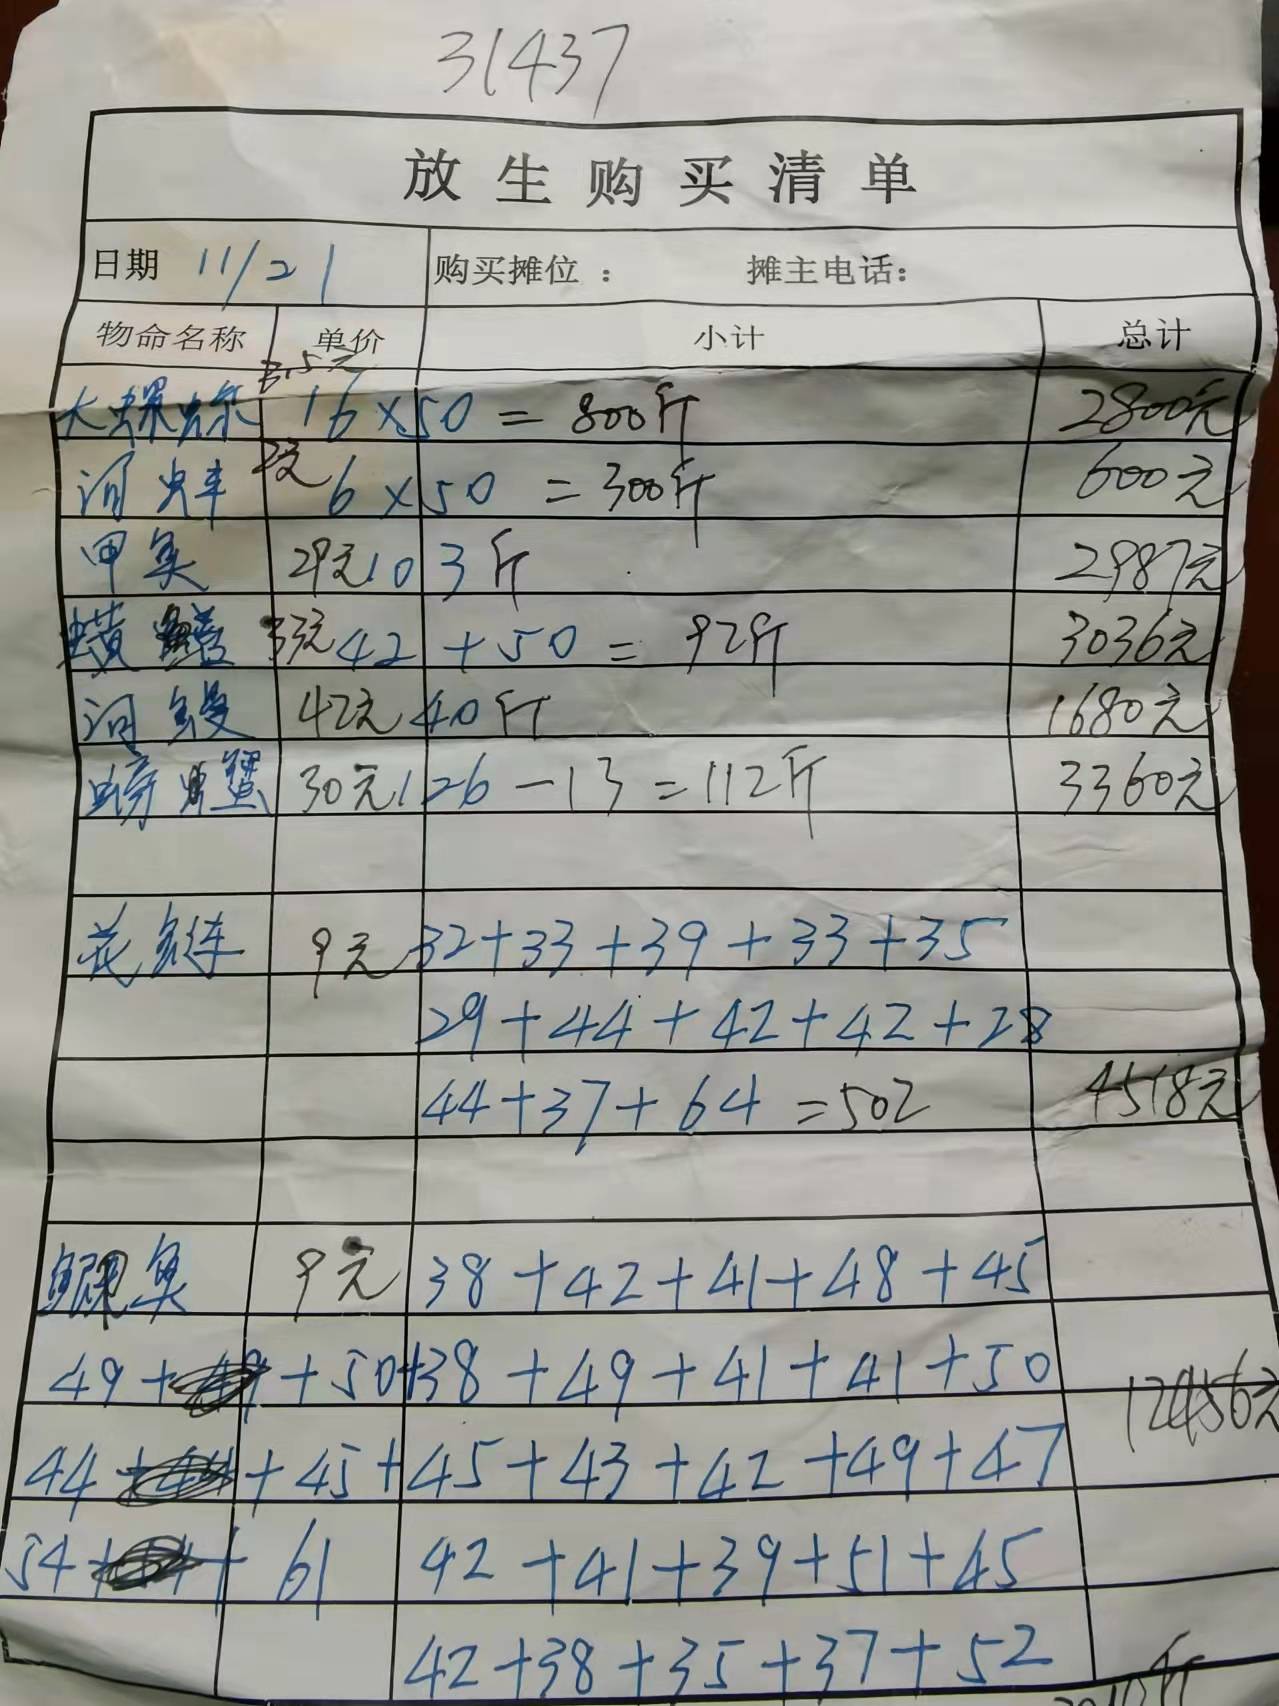 31437
放生购买清单
日期 11/21 购买摊位： 摊主电话：
物命名称 单价 小计 总计
大螺蛳 3.5元 16×50=800斤 2800元
河蚌 2元 6×50=300斤 600元
甲鱼 29元 103斤 2987元
黄鳝 33元 42+50=92斤 3036元
河鳗 42元 40斤 1680元
螃蟹 30元 126-13=112斤 3360元
花鲢 9元 32+33+39+33+35
29+44+42+42+28
44+37+64=502 4518元
鲲鱼 9元 38+42+41+48+45
49+50+38+49+41+41+50
44+45+45+43+42+49+47
54+61 42+41+39+51+45
42+38+35+37+52